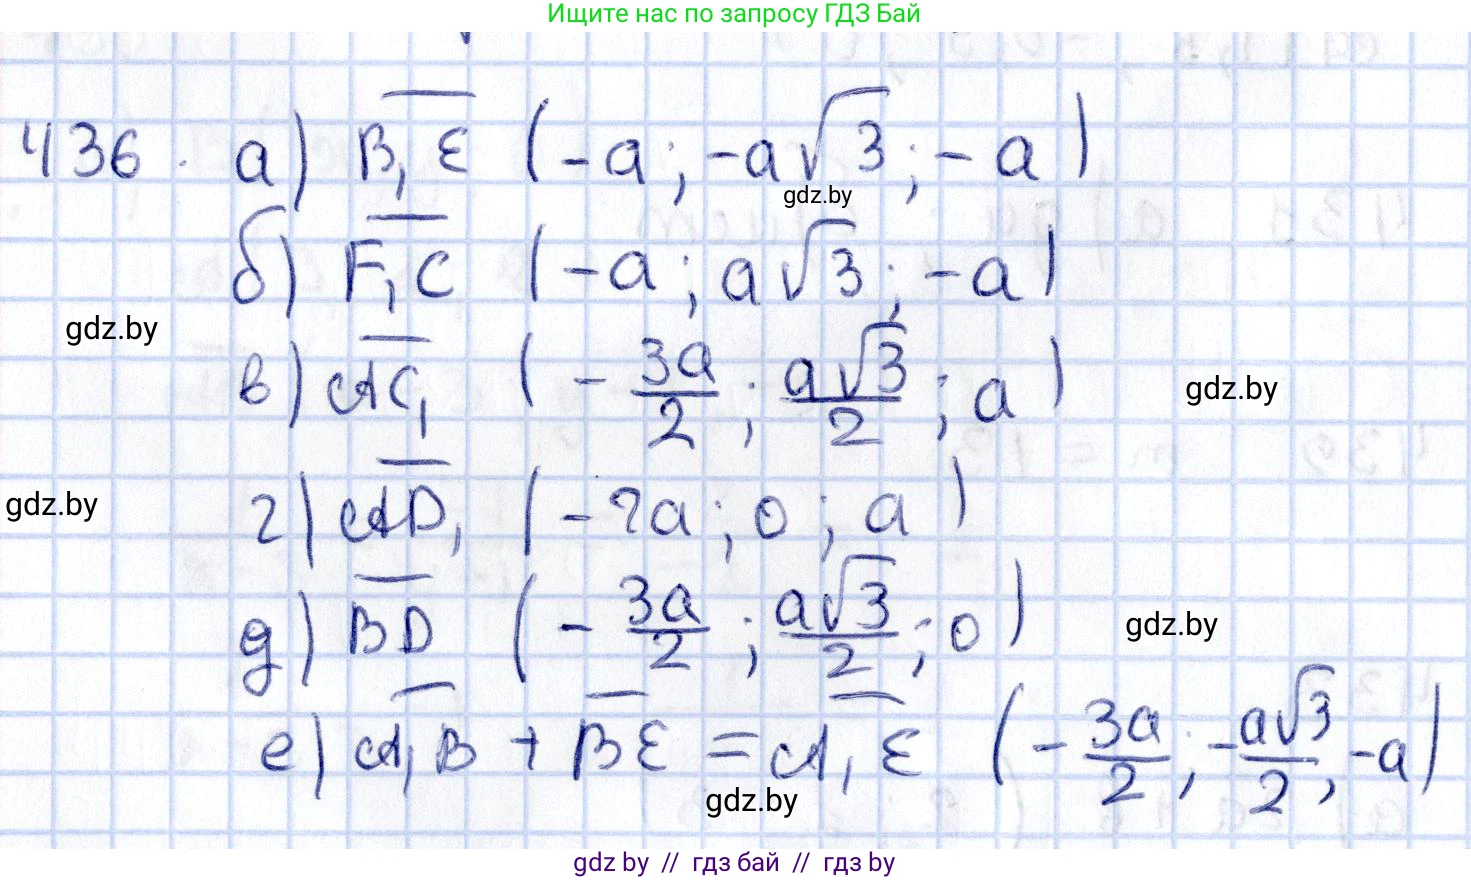 Ищите нас по запросу ГДЗ Бай
436. а) B₁E (-a; -a√3; -a)
gdz.by
б) F₁C (-a; a√3; -a)
gdz.by
в) AC₁ (-3a/2; a√3/2; a)
gdz.by
г) AD₁ (-2a; 0; a)
gdz.by
д) BD (-3a/2; a√3/2; 0)
gdz.by
е) A₁B + BE = A₁E (-3a/2; -a√3/2; -a)
gdz.by
gdz.by // гдз бай // гдз by